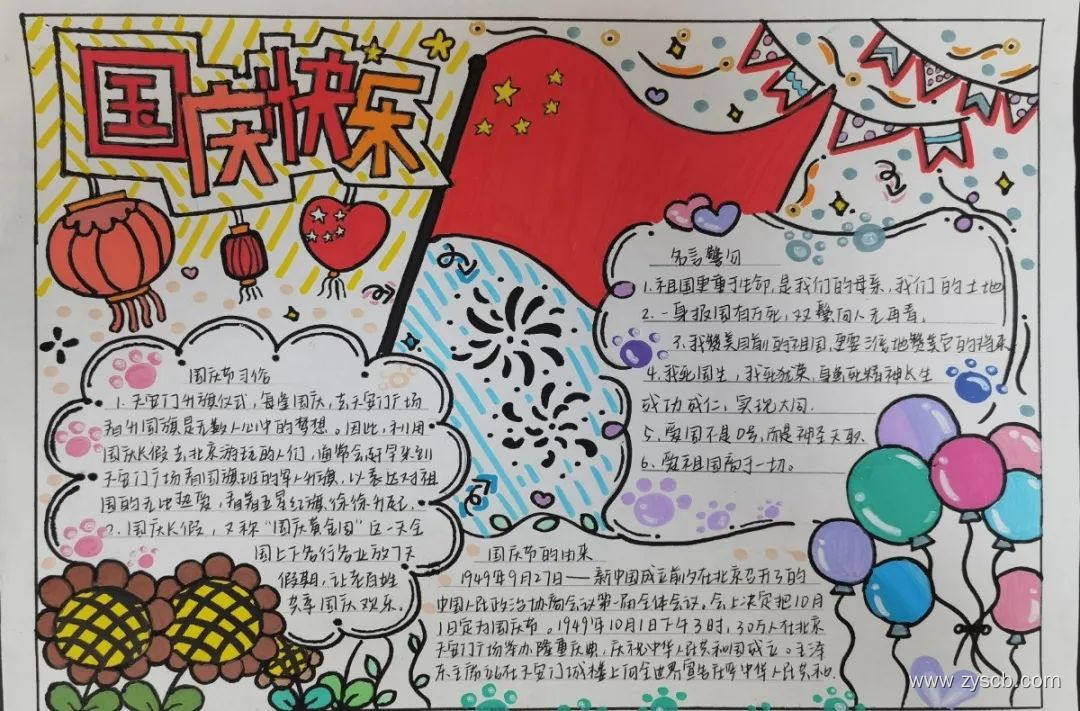 国庆快乐
国庆节习俗
1. 天安门升旗仪式，每当国庆，去天安门广场
看升国旗是无数人心中的梦想。因此，利用
国庆长假去北京游玩的人们，通常会赶早来到
天安门广场看国旗班的军人升旗，以表达对祖
国的无比热爱，看着五星红旗徐徐升起。
2. 国庆长假，又称“国庆黄金周”这一天全
国上下各行各业放7天
假期，让老百姓
共享国庆欢乐。
名言警句
1. 祖国更重于生命，是我们的母亲，我们的土地
2. 一身报国有万死，双鬓向人无再青。
3. 我赞美目前的祖国，更要三倍地赞美它的将来
4. 我死国生，我死犹荣，身虽死精神长生
成功成仁，实现大同.
5. 爱国不是口号，而是神圣天职.
6. 爱祖国高于一切。
国庆节的由来
1949年9月27日——新中国成立前夕在北京召开了的
中国人民政治协商会议第一届全体会议，会上决定把10月
1日定为国庆节。1949年10月1日下午3时，30万人在北京
天安门广场举办隆重庆典，庆祝中华人民共和国成立。毛泽
东主席站在天安门城楼上向全世界宣告在中华人民共和.
www.zyscb.com